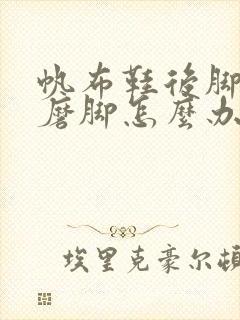 帆布鞋後脚
磨脚怎麼办
埃里克豪尔頓